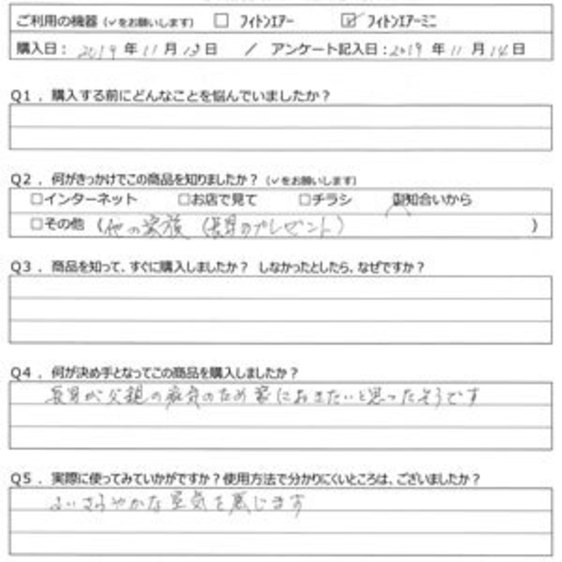 ご利用の機器 (✓をお願いします) □ フィトンエアー ☑ フィトンエアーミニ
購入日: 2019 年 11 月 13 日 / アンケート記入日: 2019 年 11 月 14 日
Q1. 購入する前にどんなことを悩んでいましたか?
Q2. 何がきっかけでこの商品を知りましたか? (✓をお願いします)
□インターネット □お店で見て □チラシ ☑知合いから
□その他 (他の家族 (長男のプレゼント) )
Q3. 商品を知って、すぐに購入しましたか? しなかったとしたら、なぜですか?
Q4. 何が決め手となってこの商品を購入しましたか?
長男が父親の病気のため家におきたいと思ったそうです
Q5. 実際に使ってみていかがですか?使用方法で分かりにくいところは、ございましたか?
さわやかな空気を感じます